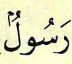 رَسُولٌۢ